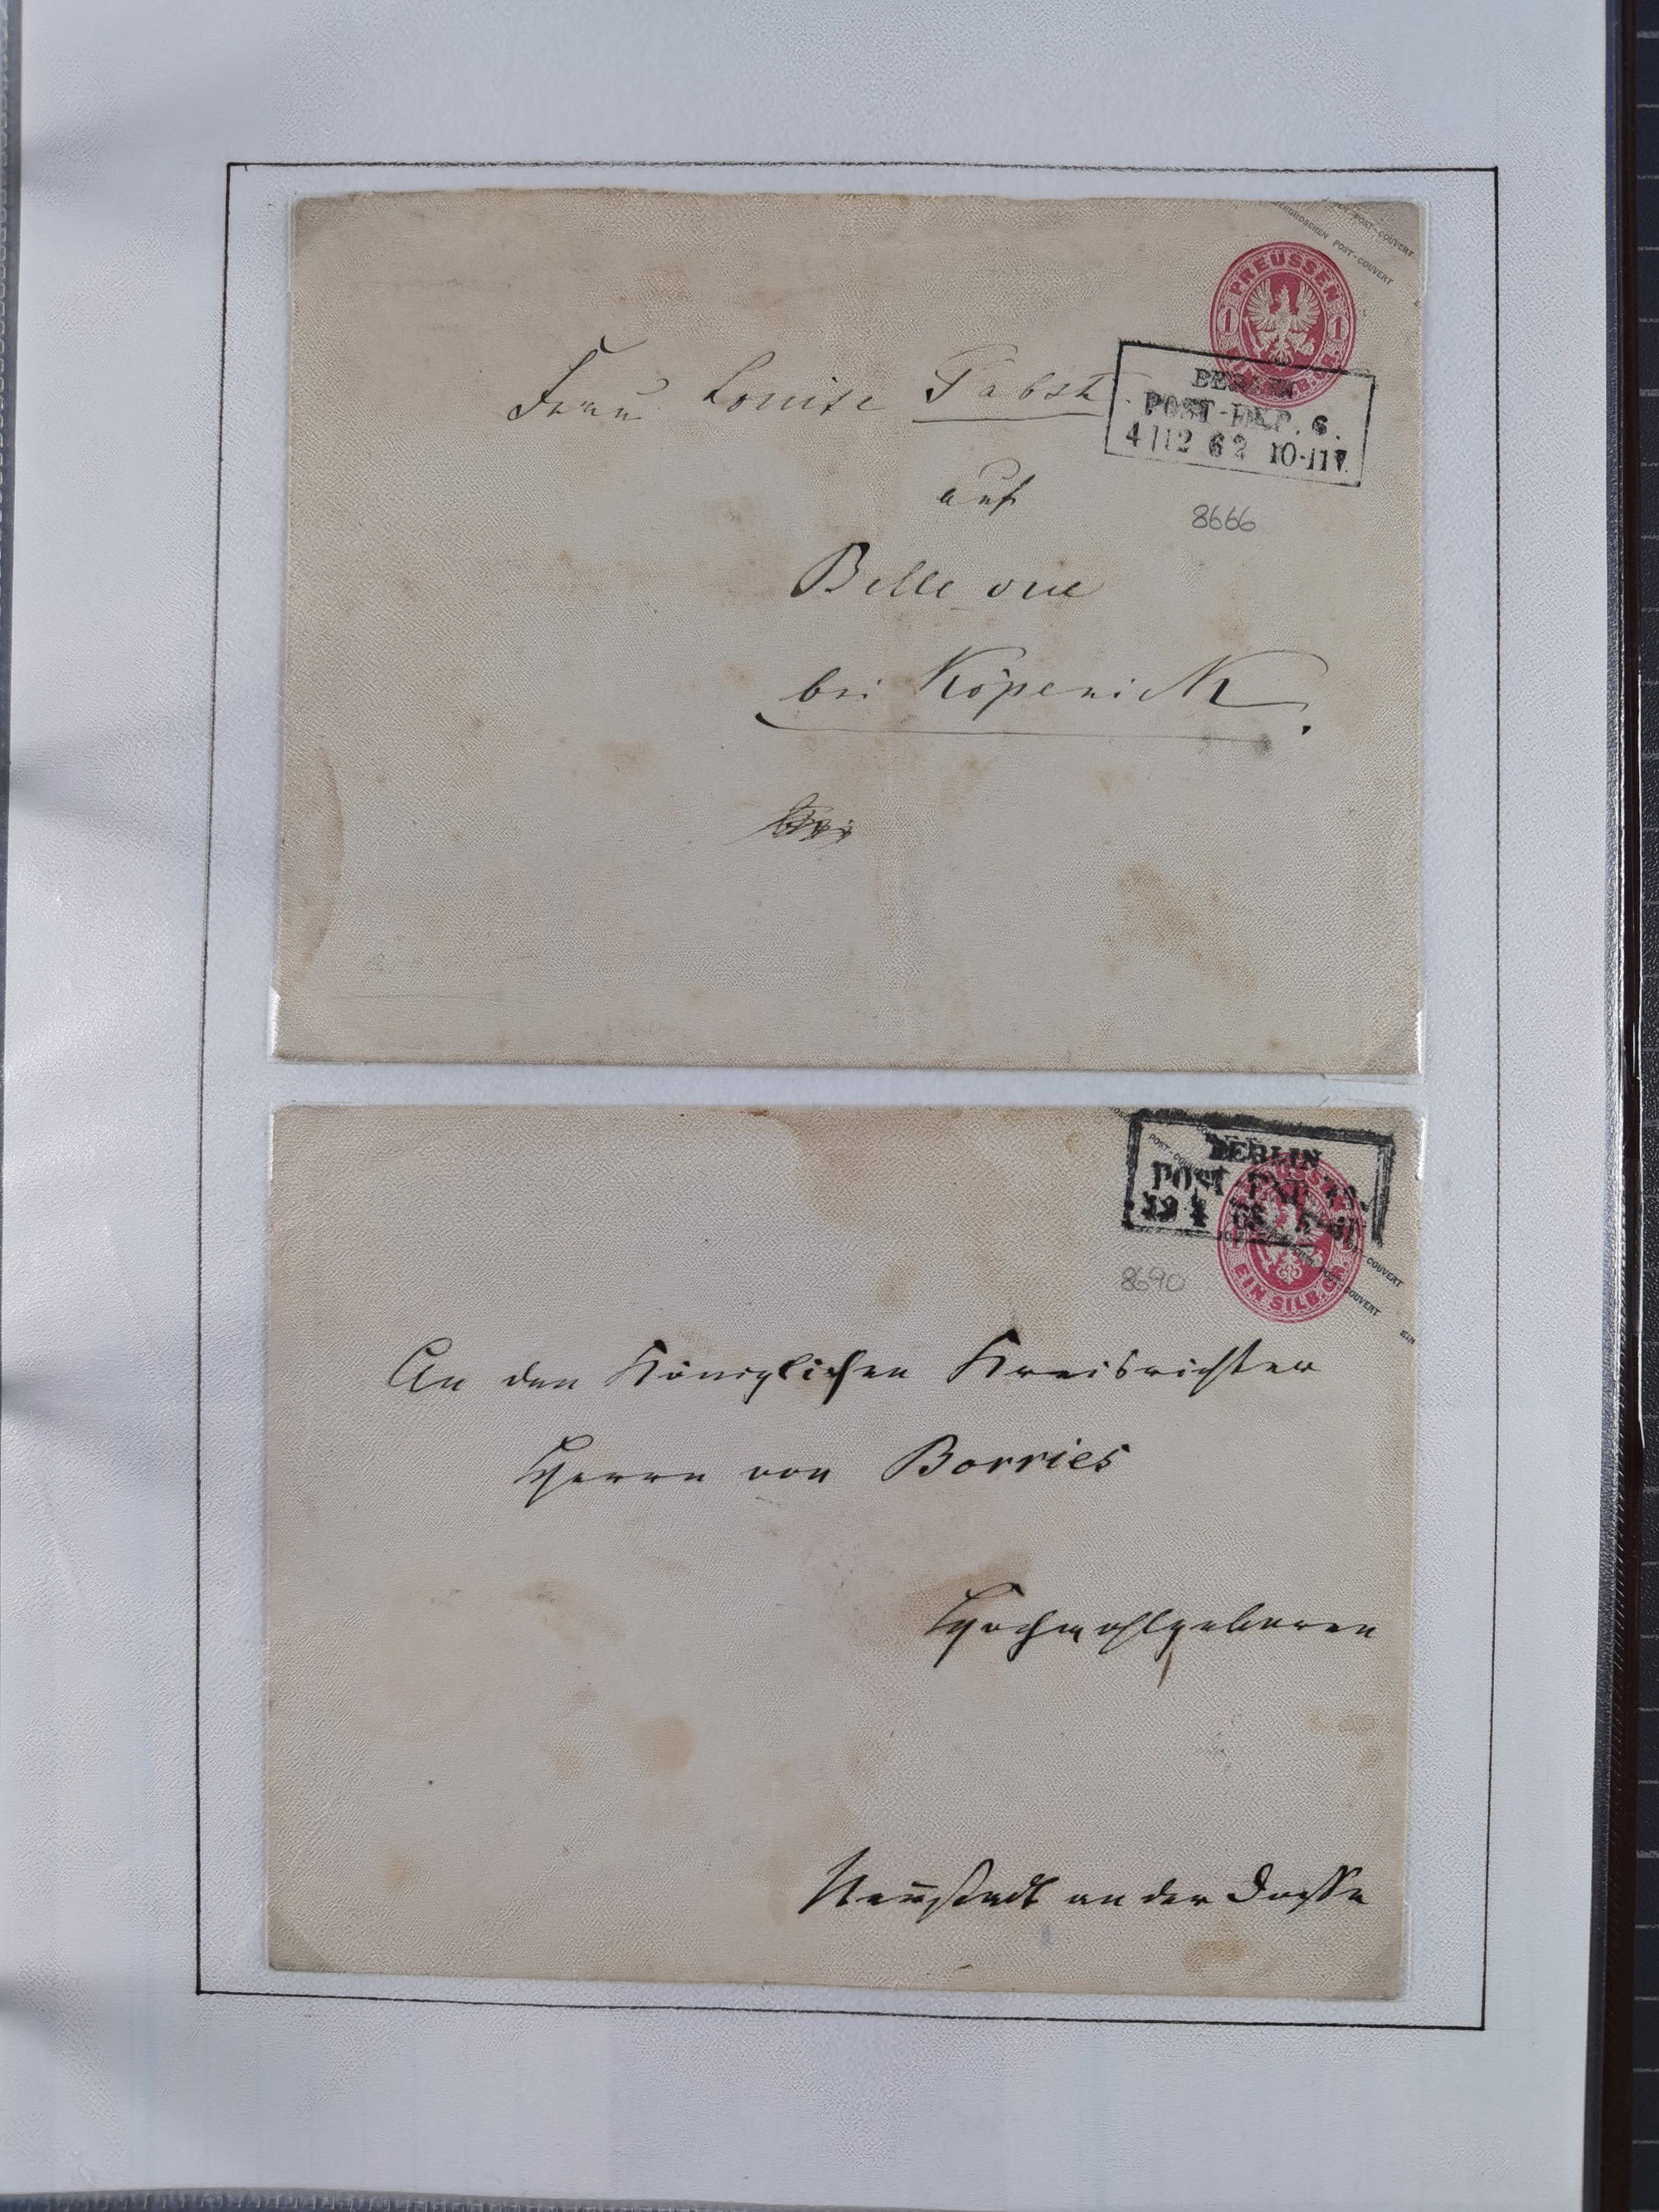 POST-COUVERT
GROSCHEN POST-COUVERT
PREUSSEN
1 1
BERLIN
POST-EXP. 6.
4 12 62 10-11V.
Frau Louise Pabst.
auf
8666
Belle vue
bei Köpenick.
BERLIN
POST EXP
POST-COUVERT
8690
EIN SILB.GR.
POST-COUVERT
COUVERT
EIN
An den Königlichen Kreisrichter
Herrn von Borries
Hochwohlgeboren
Neustadt an der Dosse